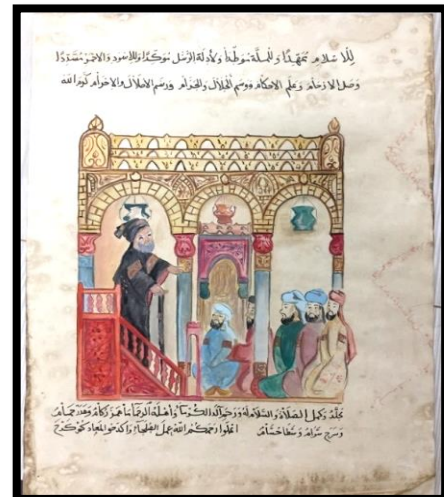 للاسلام ممهدا وللملة موطدا ولادلة الرسل موكدا وللاسود والاحمر مسددا
وصل الارحام وعلم الاحكام ووسم الحلال والحرام ورسم الاحلال والاحرام كرم الله
محله وكمل الصلاة والسلام له ورحم اله الكرما واهله الرحما ما همر ركام وهدر حمام
وسرح سوام وسطا حسام اعملوا رحمكم الله عمل الصلحا واكدحوا لمعادكم كدح